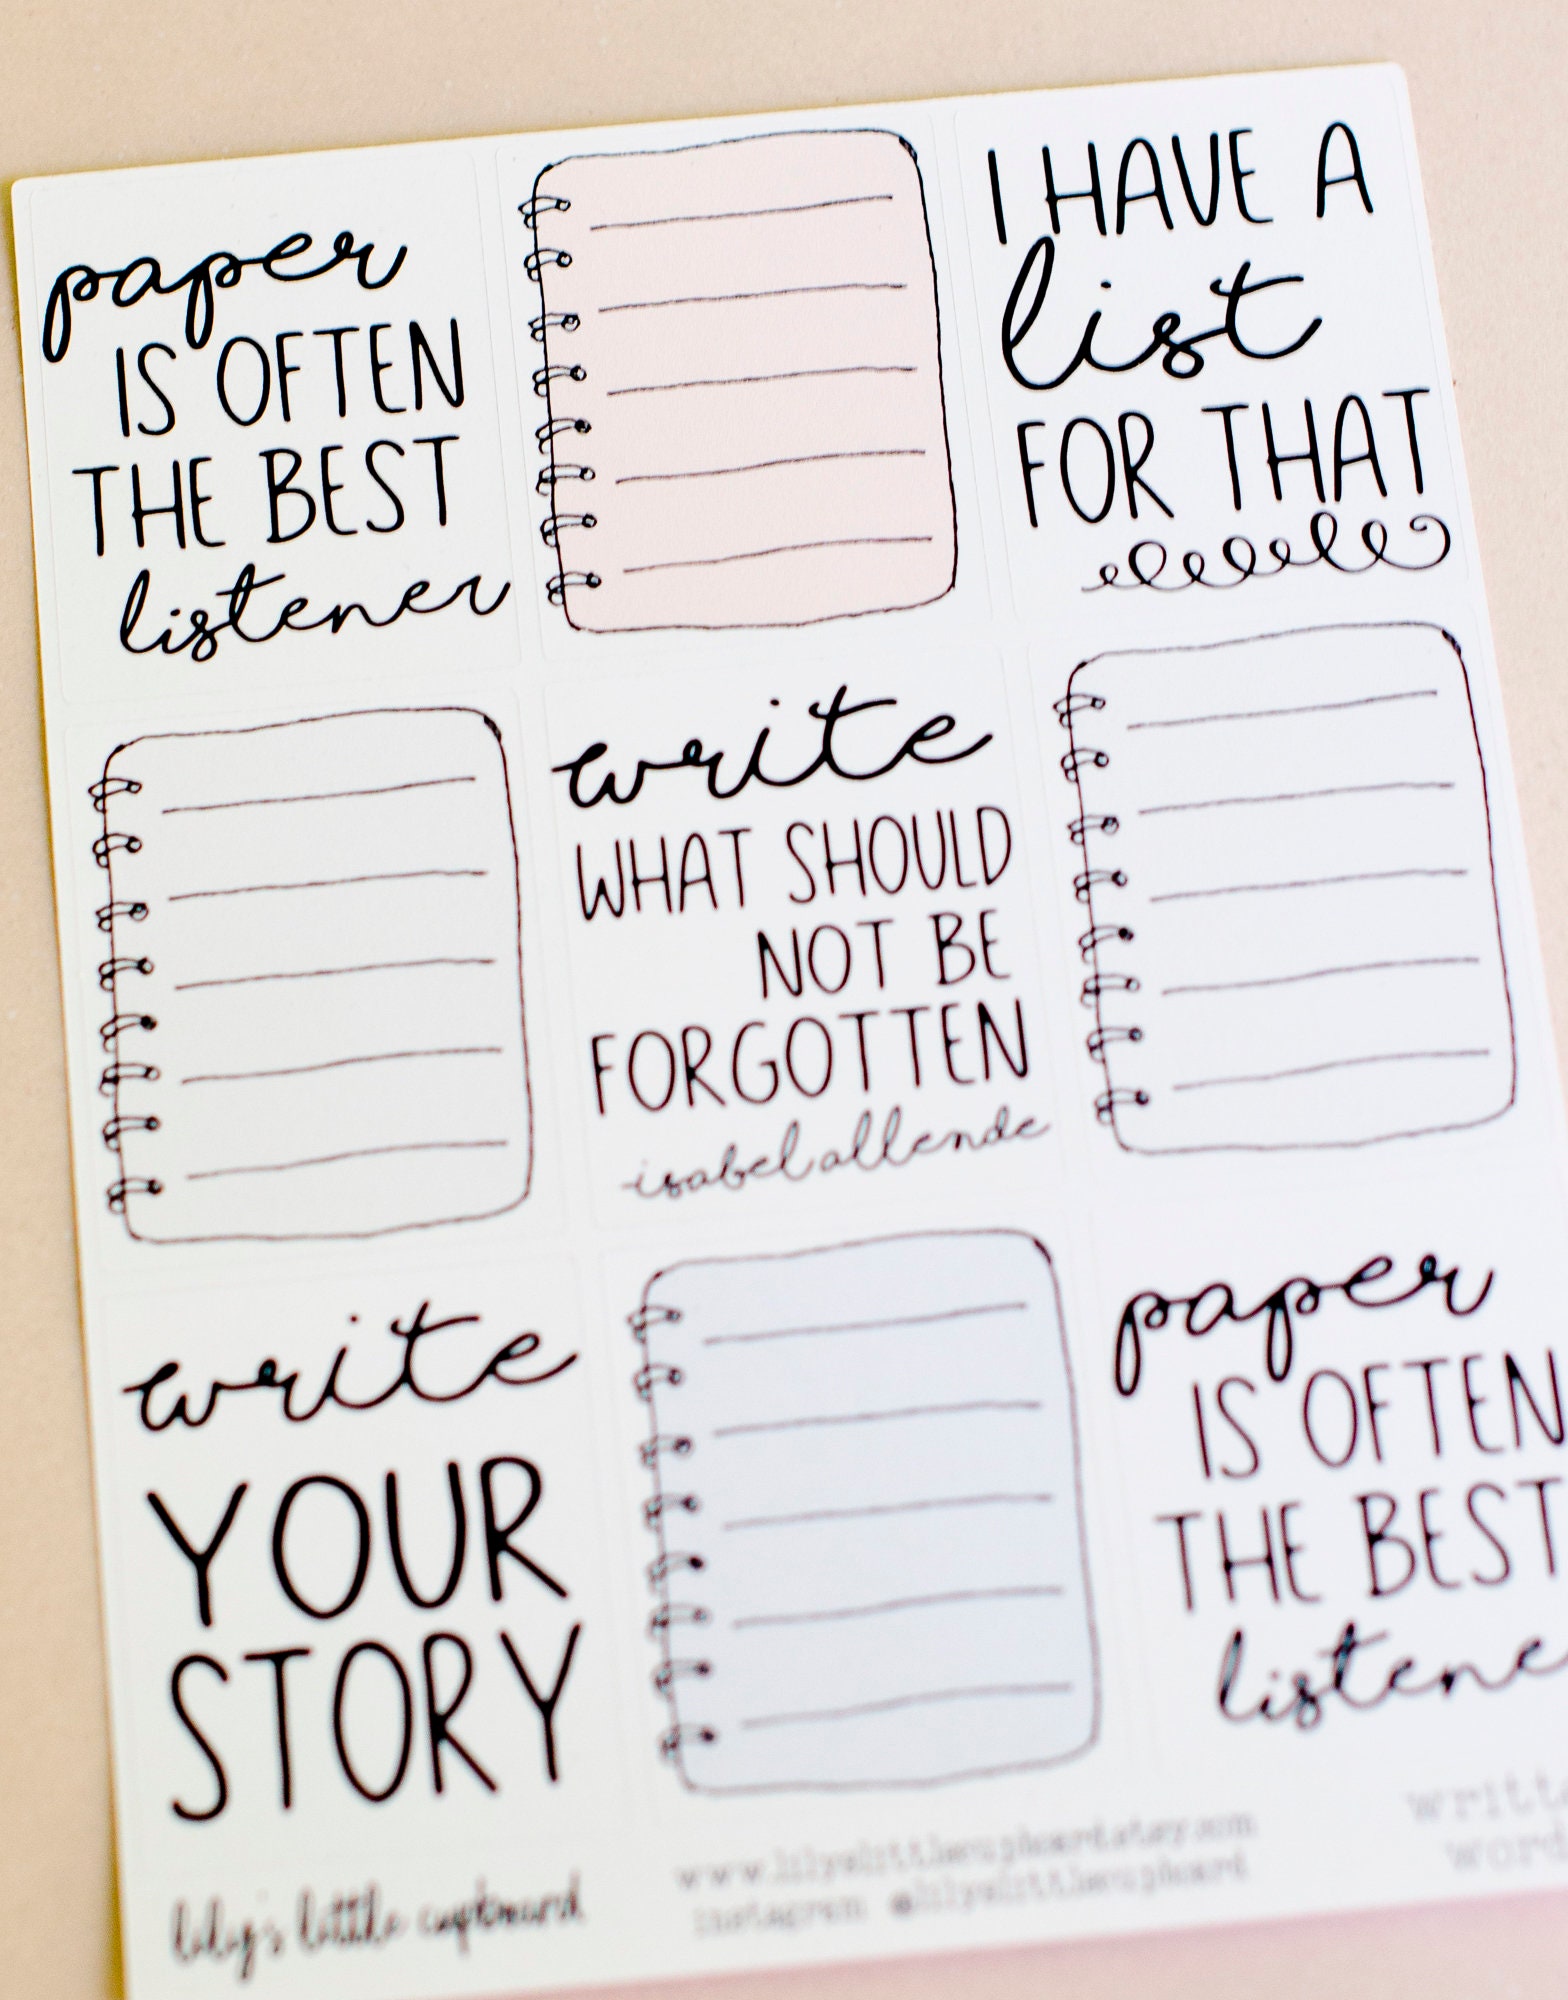 paper
IS OFTEN
THE BEST
listener
I HAVE A
list
FOR THAT
write
WHAT SHOULD
NOT BE
FORGOTTEN
isabel allende
write
YOUR
STORY
paper
IS OFTEN
THE BEST
listene
lily's little cupboard
instagram @lilyslittlecupboard